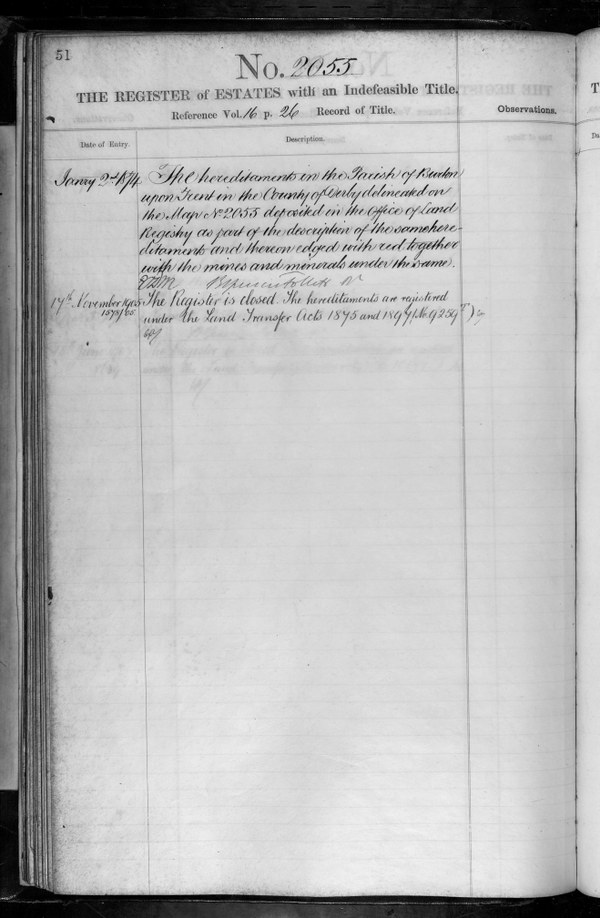 51
No. 2055
THE REGISTER of ESTATES with an Indefeasible Title.
Reference Vol. 16 p. 26 Record of Title.
Observations.
Date of Entry.
Description.
Janry 2nd 1874
The hereditaments in the Parish of Burton
upon Trent in the County of Derby delineated on
the Map No 2055 deposited in the Office of Land
Registry as part of the description of the same here-
ditaments and thereon edged with red together
with the mines and minerals under the same.
17th November 1905
1573/05
The Register is closed. The hereditaments are registered
under the Land Transfer Acts 1875 and 1897 (No. 9259